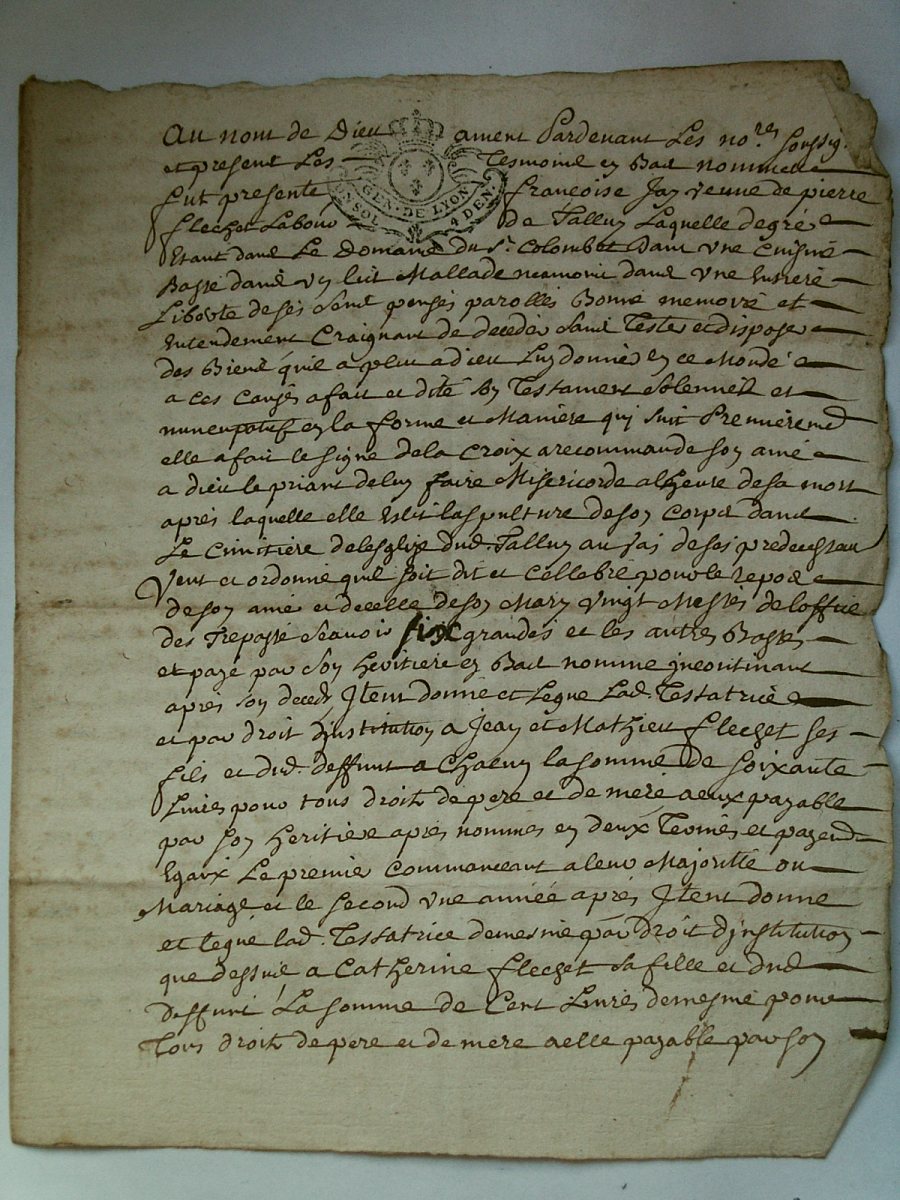 Au nom de Dieu ament Pardevant Les no.res soussig.
et present Les Tesmoins en Bas nommes
fut presente françoise Jay veuve de pierre
flechet Labour de Talluy Laquelle de gré
GEN. DE LYON
UN SOL 4 DEN
Etant dans Le Domaine du Sr. Colombet dans une Cuisine
Basse dans un lict Mallade neamoins dans une Entiere
Liberte de ses sens penses parolles Bonne memoire et
Entendement Craignant de deceder sans Tester et disposer
des Biens qu'il a pleu a dieu Luy donner en ce Monde
a ces causes a fait et dité son Testament solennell et
nuncupatif en la forme et Maniere quy suit Premierem.t
elle a fait le signe de la Croix a recommande son ame
a dieu le priant de luy faire Misericorde a lheure de sa mort
apres laquelle elle Eslit la spulture de son Corps dans
Le Cimitiere de lesglize dud. Talluy au de ses predecesseur
Veut et ordonne quil soit dit et cellebré pour le repos
de son ame et de celle de son Mary vingt Messes de loffice
des Trepassé scavoir six grandes et les autres Basses
et payé par son heritiere en Bas nomme incontinant
apres son deceds Item donne et Legue Lad. Testatrice
et par droit d'institution a Jean et Mathieu flechet ses
fils et dud. deffunt a Chacun la somme de soixante
Livres pour tous droit de pere et de mere a eux payable
par son heritiere apres nommes en deux Termes et payem.t
Egaix Le premier Commanceant a leur Majorité ou
Mariage et le second une année apres Item donne
et legue lad. Testatrice de mesme par droit d'institution
que dessus a Catherine flechet sa fille et dud
deffunt La somme de Cent Livres de mesme pour
Tous droit de pere et de mere a elle payable par son